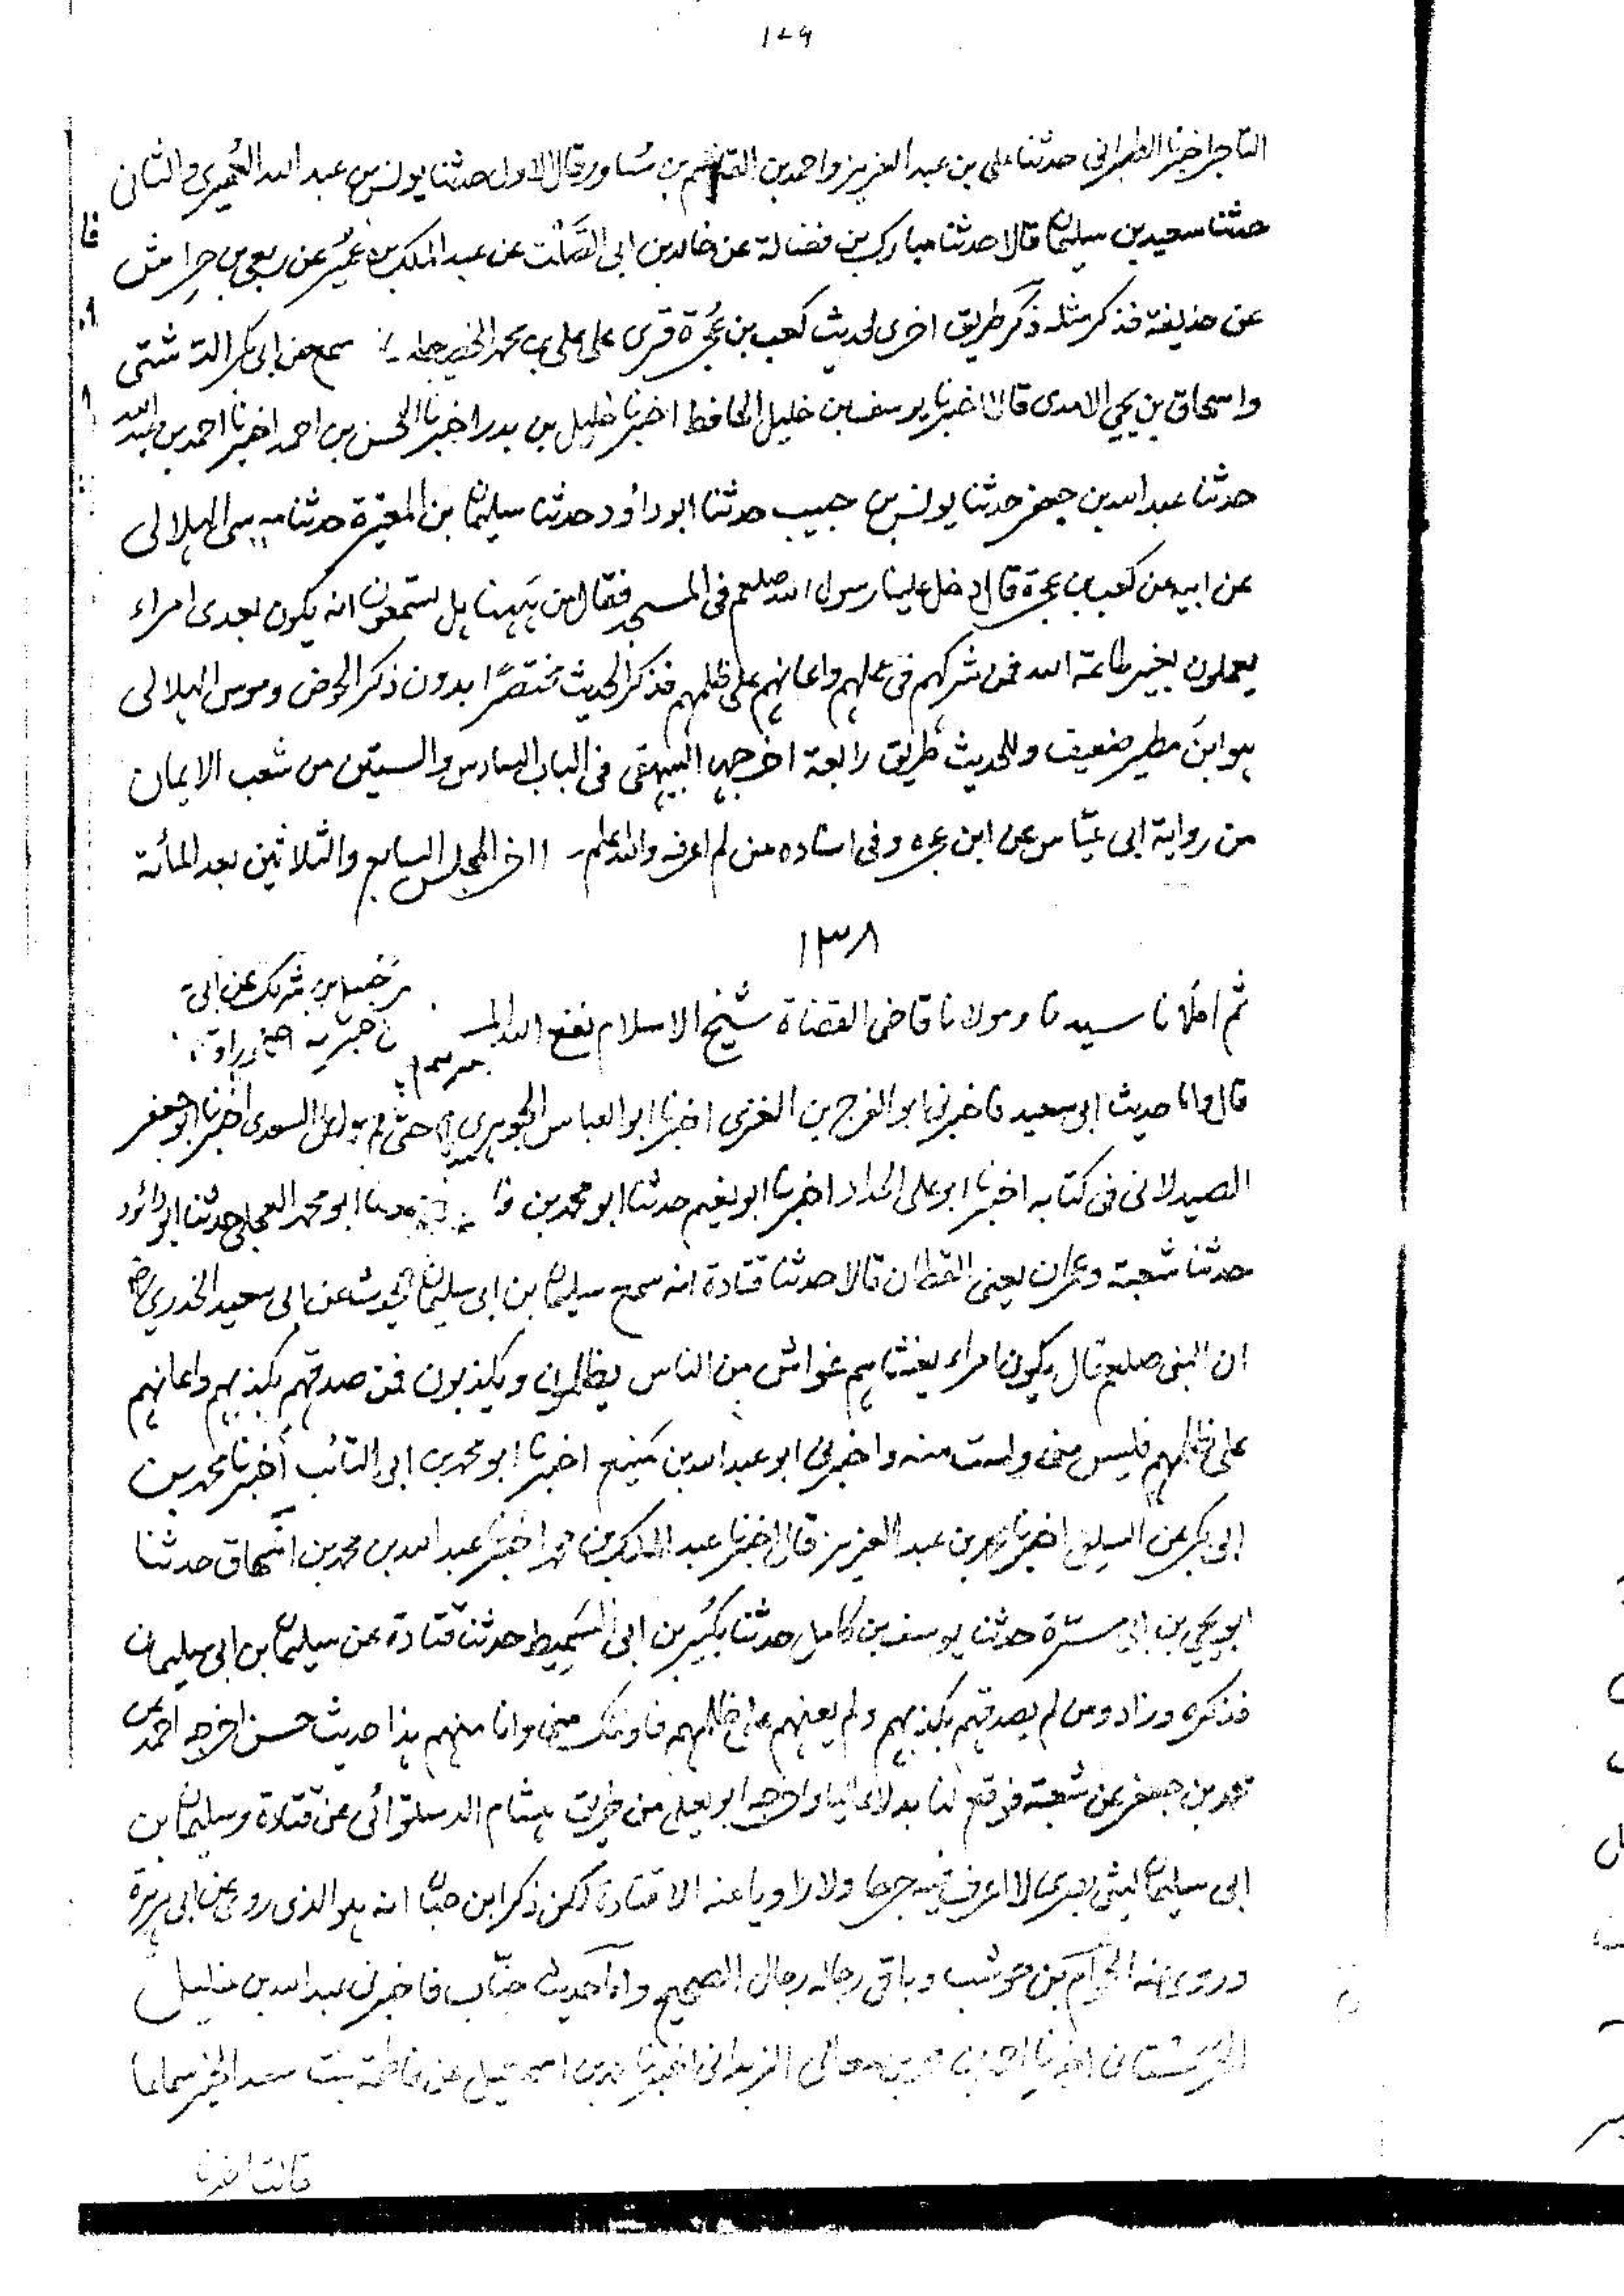 ١٧٩
التاجر اخبرنا الطبرانى حدثنا على بن عبد العزيز واحمد بن القاسم بن مساور قال الاول حدثنا يونس بن عبد الله العُميرى والثانى
حدثنا سعيد بن سليمان قالا حدثنا مبارك بن فضالة عن خالد بن ابى الصَّلْت عن عبد الملك بن عُمَير عن ربعى بن حِراش
عن حذيفة فذكر مثله ذكر طريق اخرى لحديث كعب بن عُجْرة قرى على على بن محمد الخطيب سمع من ابى بكر الدشتى
واسحاق بن يحيى الامدى قالا اخبرنا يوسف بن خليل الحافظ اخبرنا خليل بن بدر اخبرنا الحسن بن احمد اخبرنا احمد بن عبد الله
حدثنا عبد الله بن جعفر حدثنا يونس بن حبيب حدثنا ابو داؤد حدثنا سليمان بن المغيرة حدثنا موسى الهلالى
عن ابيه عن كعب بن عجرة قال دخل علينا رسول الله صلعم فى المسجد فقال من ههنا هل تسمعون انه يكون بعدى امراء
يعملون بغير طاعة الله فمن شركهم فى عملهم واعانهم على ظلمهم فذكر الحديث مختصرًا بدون ذكر الحوض وموسى الهلالى
هو ابن مطير ضعيف وللحديث طريق رابعة اخرجها البيهقى فى الباب السادس والستين من شعب الايمان
من رواية ابى عيّاش عن ابن عجره وفى اسناده من لم اعرفه والله اعلم - اخر المجلس السابع والثلاثين بعد المائة
١٣٨
ثم املانا سيدنا ومولانا قاضى القضاة شيخ الاسلام نفع الله
قال واما حديث ابى سعيد فاخبرنى ابو الفرج بن الغزى اخبرنا ابو العباس الجوهرى السعدى اخبرنا ابو جعفر
الصيدلانى فى كتابه اخبرنا ابو على الحداد اخبرنا ابو نعيم حدثنا ابو محمد بن فا ابو محمد العجلى حدثنا ابو داؤد
حدثنا شعبة وعمران يعنى القطان قالا حدثنا قتادة انه سمع سليمان بن ابى سليمان يحدث عن ابى سعيد الخدرى رض
ان النبى صلعم قال يكون امراء يغشاهم غواش من الناس يظلمون ويكذبون فمن صدقهم بكذبهم واعانهم
على ظلمهم فليس منى ولست منه واخبرنى ابو عبد الله بن منيع اخبرنا ابو محمد بن ابى التائب أخبرنا محمد بن
ابى بكر عن السلفى اخبرنا بن عبد العزيز قال اخبرنا عبد الملك بن محمد اخبرنا عبد الله بن محمد بن اسحاق حدثنا
ابو يحيى بن ابى مسرّة حدثنا يوسف بن كامل حدثنا بكير بن ابى السَّمِيط حدثنا قتادة عن سليمان بن ابى سليمان
فذكره وزاد ومن لم يصدقهم بكذبهم ولم يعنهم على ظلمهم فاولئك منى وانا منهم هذا حديث حسن اخرجه احمد عن
محمد بن جعفر عن شعبة فوقع لنا بدلا عاليا واخرجه ابو يعلى من طريق هشام الدستوائى عن قتادة وسليمان بن
ابى سليمان ليثى بصرى لا اعرف فيه جرحا ولا راويا عنه الا قتادة لكن ذكر ابن حبّان انه هو الذى روى عن ابى هريرة
وروى عنه العوّام بن حوشب وباقى رجاله رجال الصحيح واما حديث خبّاب فاخبرنى عبد الله بن خليل
الحرستانى اخبرنا احمد بن محمد بن معالى الزبدانى اخبرنا محمد بن اسمعيل عن فاطمة بنت سعد الخير سماعا
قالت اخبرنا